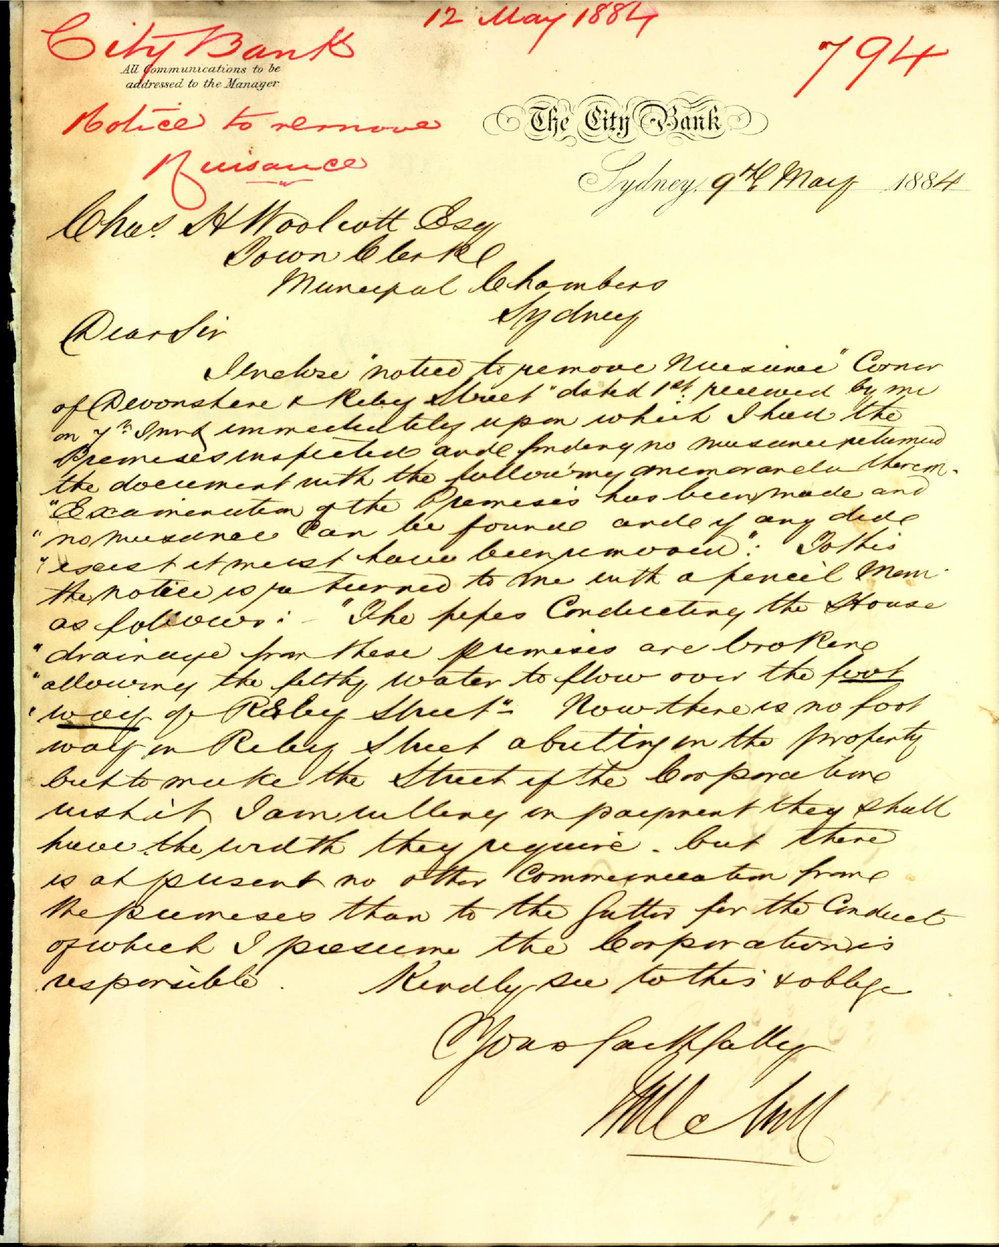 12 May 1884
City Bank
794
All Communications to be
addressed to the Manager
Notice to remove
Nuisance
The City Bank
Sydney, 9th May 1884
Chas. H Woolcott Esq
Town Clerk
Municipal Chambers
Sydney
Dear Sir
I inclose "notice to remove Nuisance" Corner
of Devonshire & Riley Street" dated 1st, received by me
on 7th Inst, immediately upon which I had the
Premises inspected and finding no nuisance returned
the document with the following memoranda thereon.
"Examination of the Premises has been made and
"no nuisance Can be found and if any did
"exist it must have been removed": To this
the notice is returned to me with a pencil Mem.
as follows: - "The pipes Conducting the House
"drainage from these premises are broken
"allowing the filthy water to flow over the foot
"way of Riley Street" - Now there is no foot
way in Riley Street abutting on the property
but to make the Street if the Corporation
wish it I am willing on payment they shall
have the width they require. but there
is at present no other Communication from
the premises than to the Gutter for the Conduct
of which I presume the Corporation is
responsible. Kindly see to this & oblige
Yours faithfully